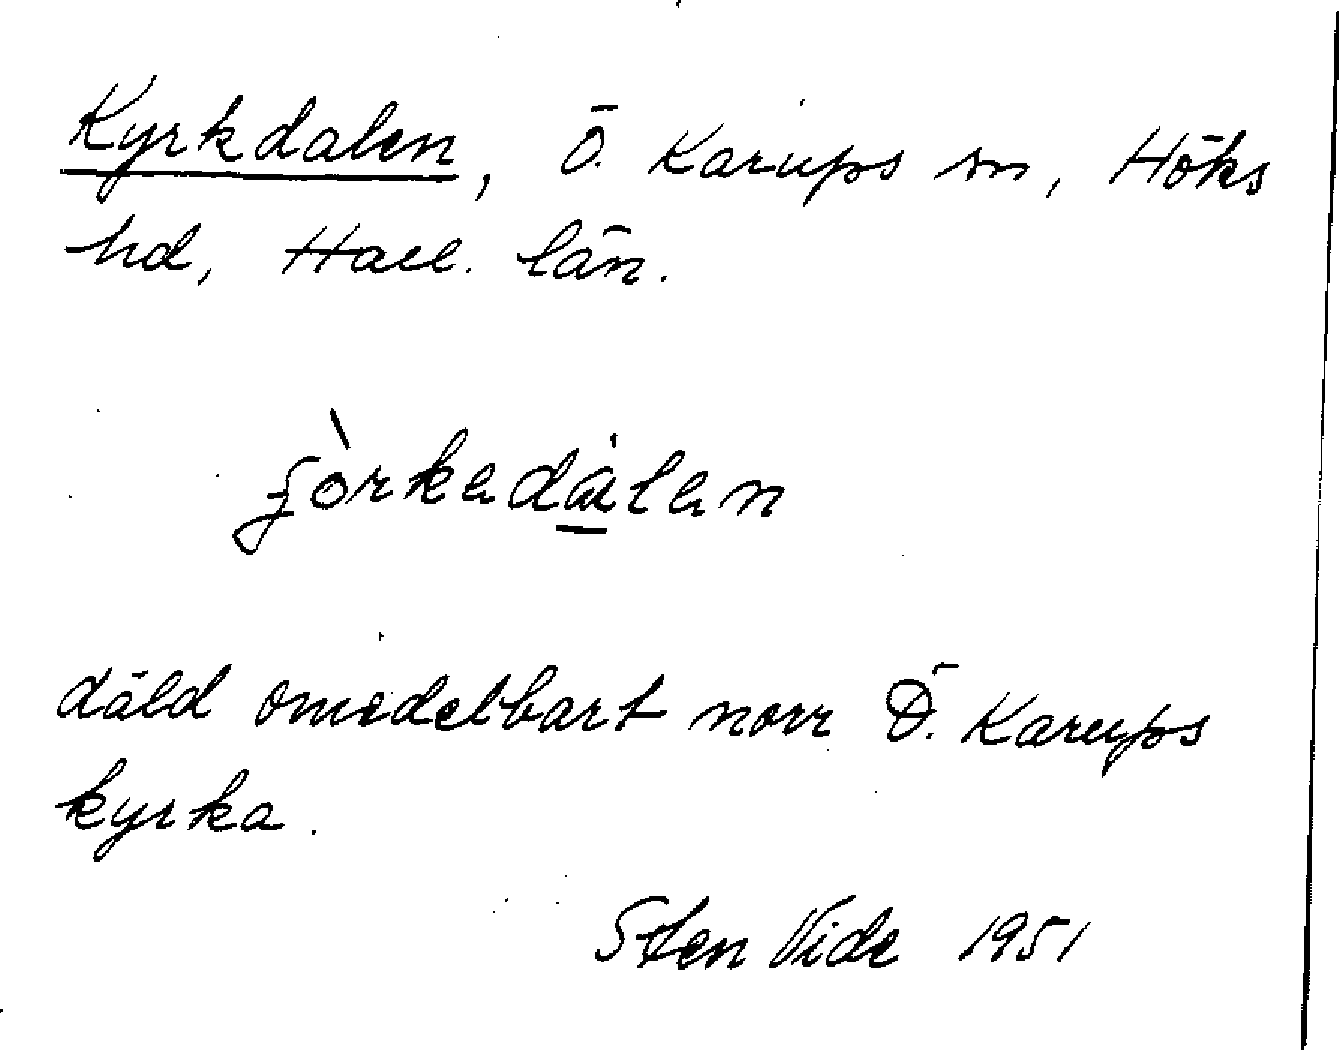 Kyrkdalen, Ö. Karups sn, Höks
hd, Hall. län.
ʄòrkedàlen
däld omedelbart norr Ö. Karups
kyrka.
Sten Vide 1951